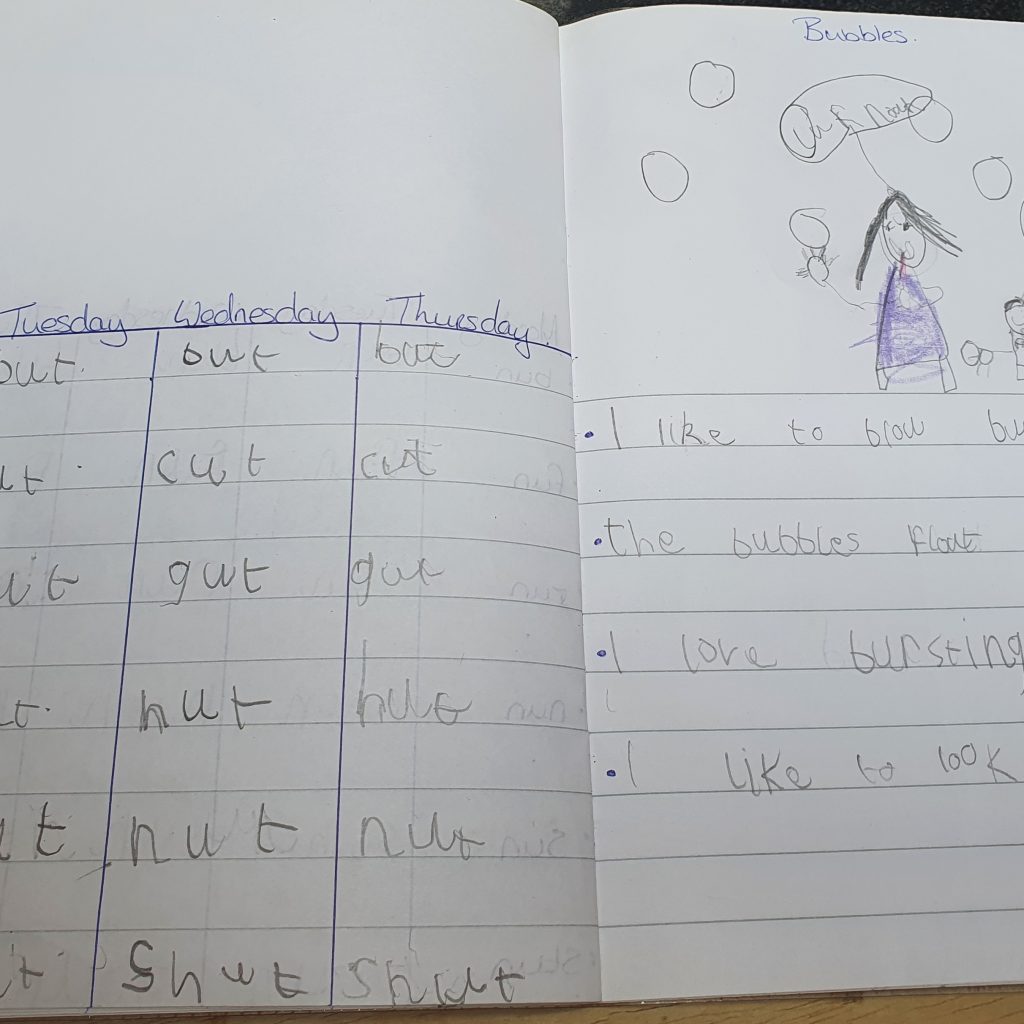 Tuesday Wednesday Thursday
but but but
ut cut cut
ut gut gut
t hut hut
ut nut nut
t shut shut
Bubbles.
I like to blow bu
the bubbles float
I love bursting
I like to look